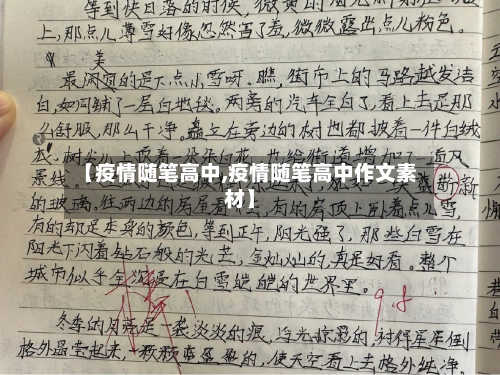 等到快日落的时候,微黄的
上,那点儿薄雪好像忽然害了羞,微微露出点儿粉色。
美
最闲宜的是下点小雪呀。瞧,街市上的马路越发洁
白,如同铺了一层白地毯。两旁的汽车全白了,看上去是那
么舒服,那么干净。矗立在旁边的树也都披着一件白绒
衣
景线。
【疫情随笔高中,疫情随笔高中作文素
材】
的玻璃。往两边的房屋看
有的房顶上卧着点儿雪,
有的却是本身的颜色,等到正午,阳光强了,那些白雪在
阳光下闪着钻石般的光芒,金灿灿的,真是好看。整个
城市似乎全沉浸在白雪皑皑的世界里。
9.8
冬季的月亮是一裘淡淡的痕,
衬得星星倒
格外晶莹起来,一颗颗幸盈盈的,使天空看上去格外纯净。